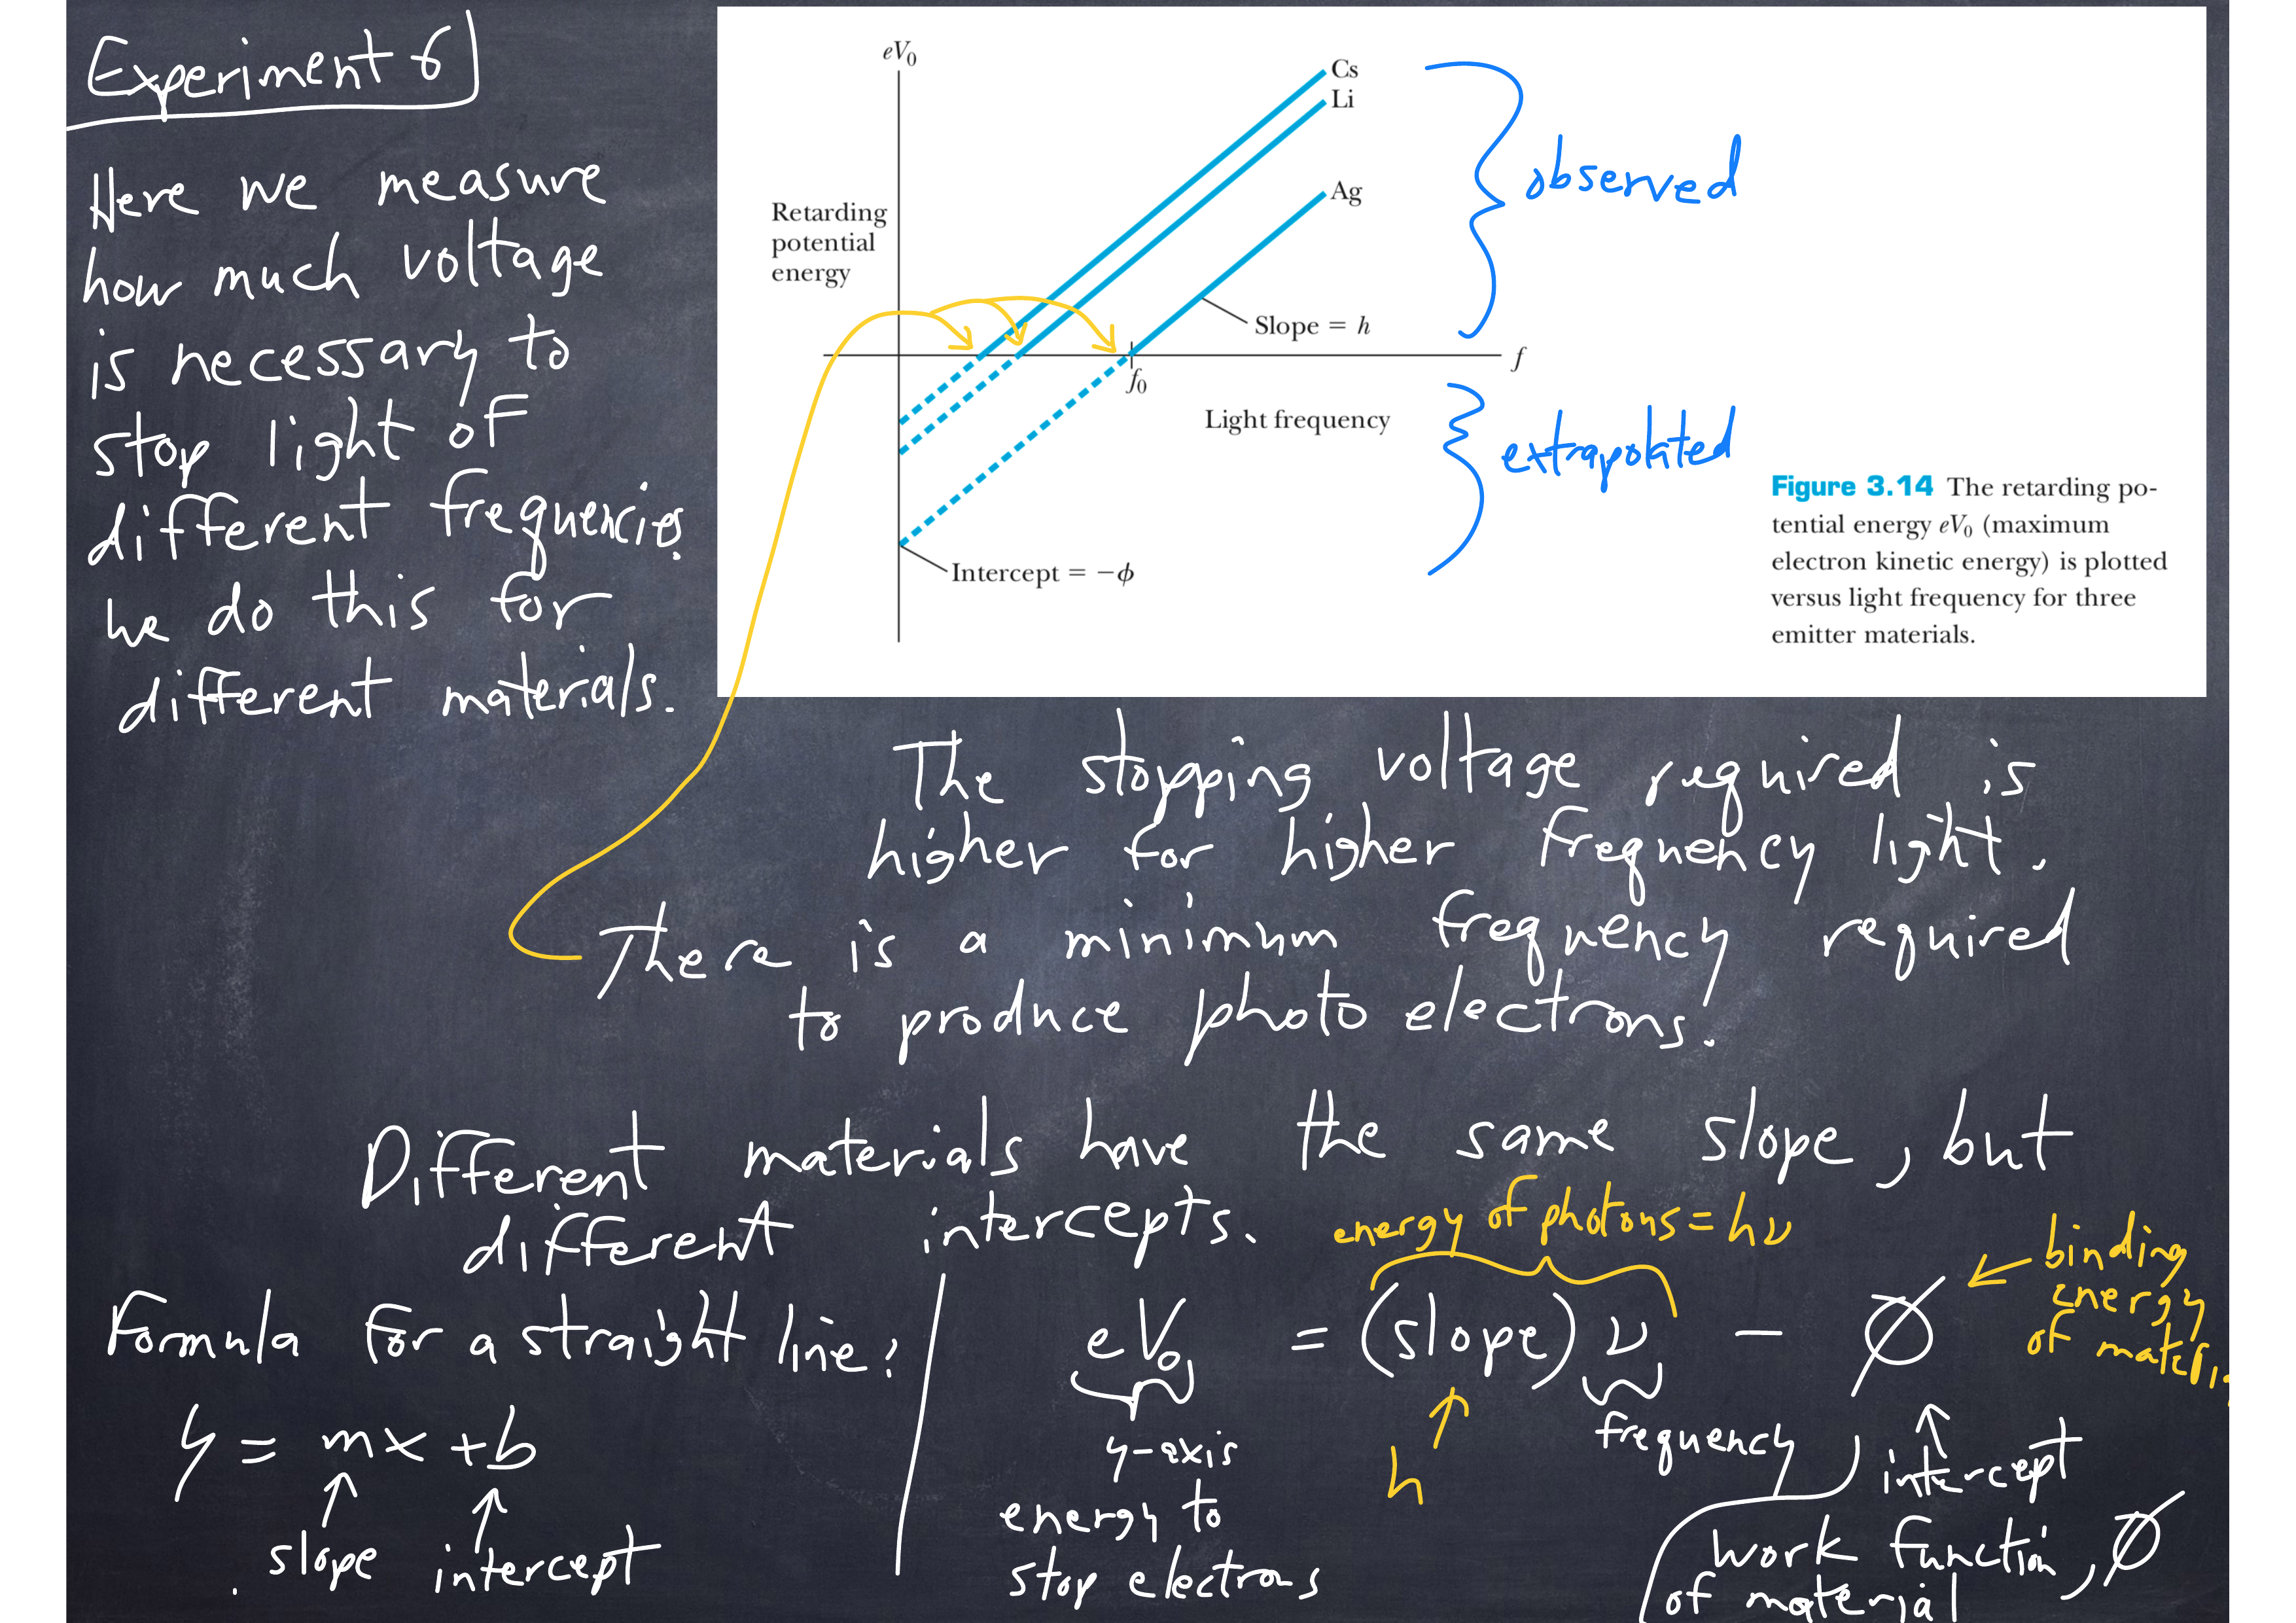 Experiment 6
Here we measure
how much voltage
is necessary to
stop light of
different frequencies.
We do this for
different materials.
eV₀
Cs
Li
Ag
Retarding
potential
energy
Slope = h
f
f₀
Light frequency
Intercept = −ϕ
observed
extrapolated
Figure 3.14 The retarding po-
tential energy eV₀ (maximum
electron kinetic energy) is plotted
versus light frequency for three
emitter materials.
The stopping voltage required is
higher for higher frequency light.
There is a minimum frequency required
to produce photo electrons!
Different materials have the same slope, but
different intercepts.
energy of photons = hν
binding
energy
of materi
Formula for a straight line:
y = mx + b
slope intercept
eV₀ = (slope) ν − ϕ
y-axis
energy to
stop electrons
h
frequency
intercept
work function, ϕ
of material